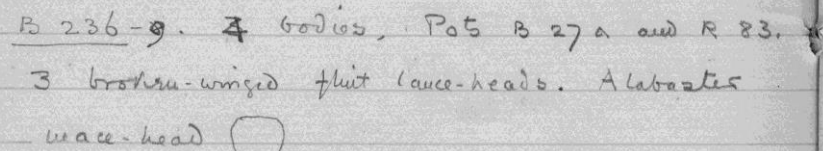 B 236-9. 4 bodies, Pots B 27 a and R 83.
3 broken-winged flint lance-heads. Alabaster
mace-head